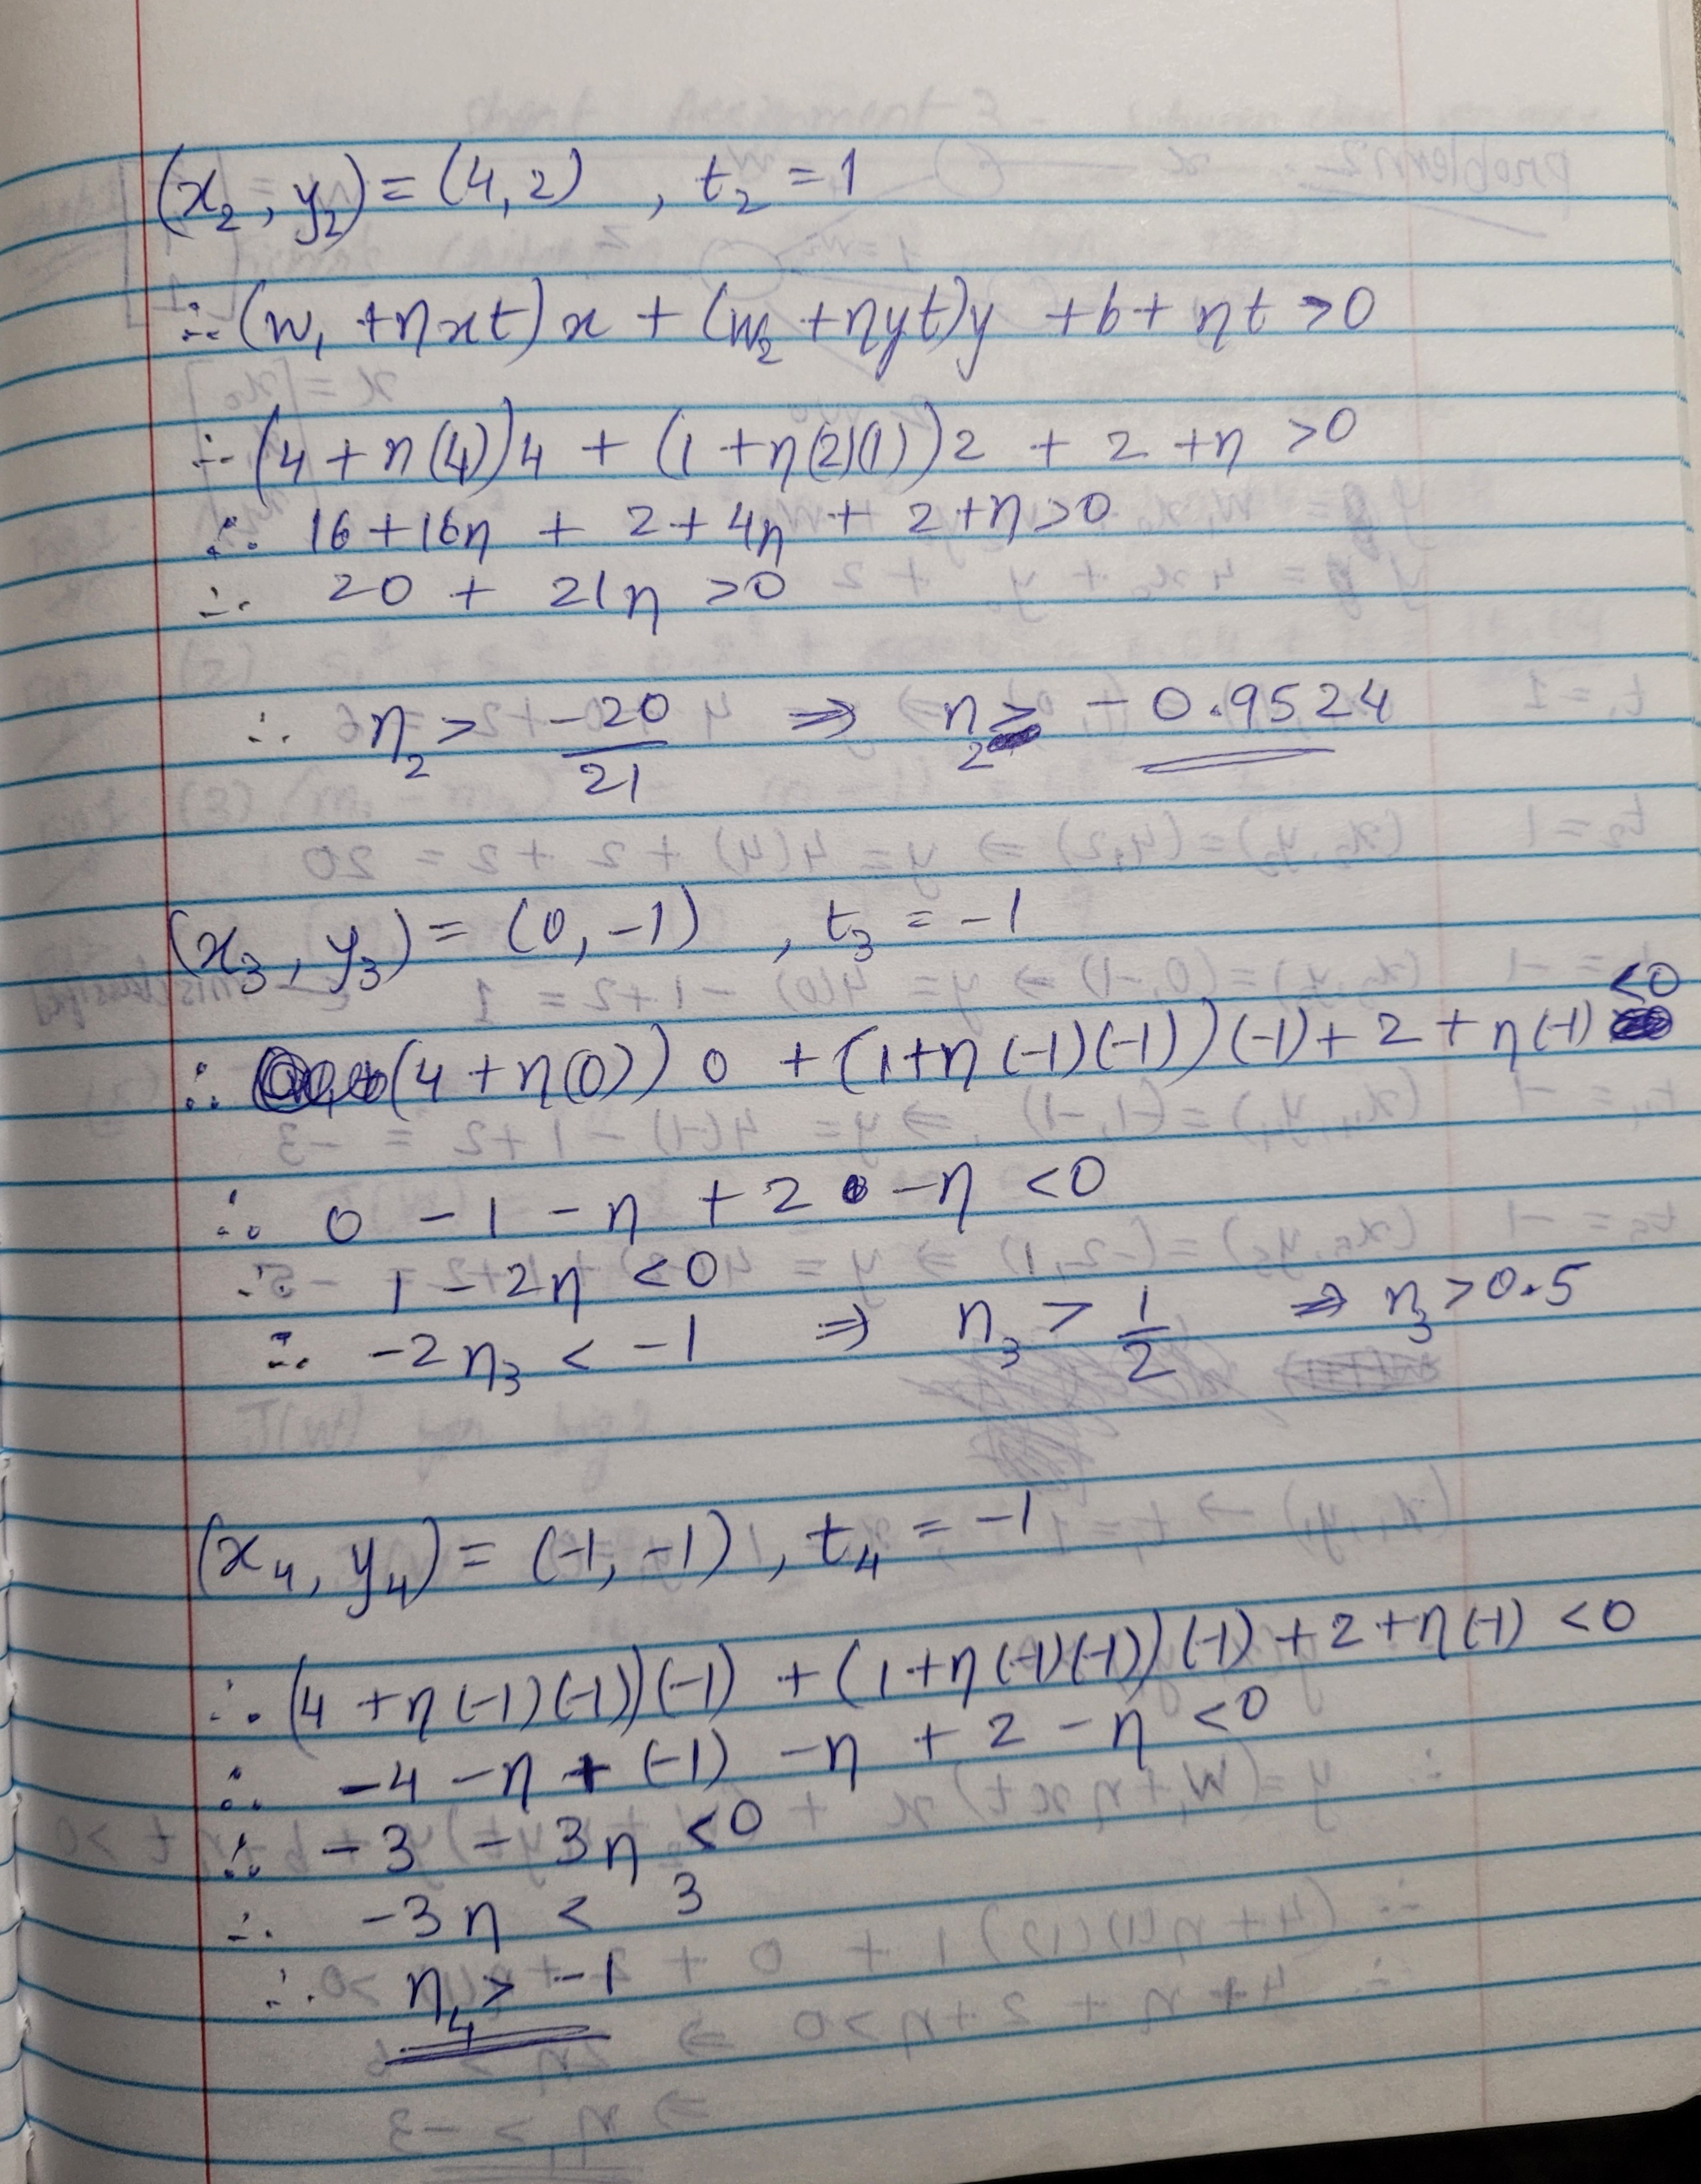 (x₂, y₂) = (4, 2) , t₂ = 1
∴ (w₁ + ηxt) x + (w₂ + ηyt) y + b + ηt > 0
∴ (4 + η(4)) 4 + (1 + η(2)(1)) 2 + 2 + η > 0
∴ 16 + 16η + 2 + 4η + 2 + η > 0
∴ 20 + 21η > 0
∴ η₂ > -20/21 ⇒ η₂ > -0.9524
(x₃, y₃) = (0, -1) , t₃ = -1
∴ (4 + η(0)) 0 + (1 + η(-1)(-1)) (-1) + 2 + η(-1) < 0
∴ 0 - 1 - η + 2 - η < 0
∴ 1 - 2η < 0
∴ -2η₃ < -1 ⇒ η₃ > 1/2 ⇒ η₃ > 0.5
(x₄, y₄) = (-1, -1) , t₄ = -1
∴ (4 + η(-1)(-1)) (-1) + (1 + η(-1)(-1)) (-1) + 2 + η(-1) < 0
∴ -4 - η + (-1) - η + 2 - η < 0
∴ -3 - 3η < 0
∴ -3η < 3
∴ η₄ > -1